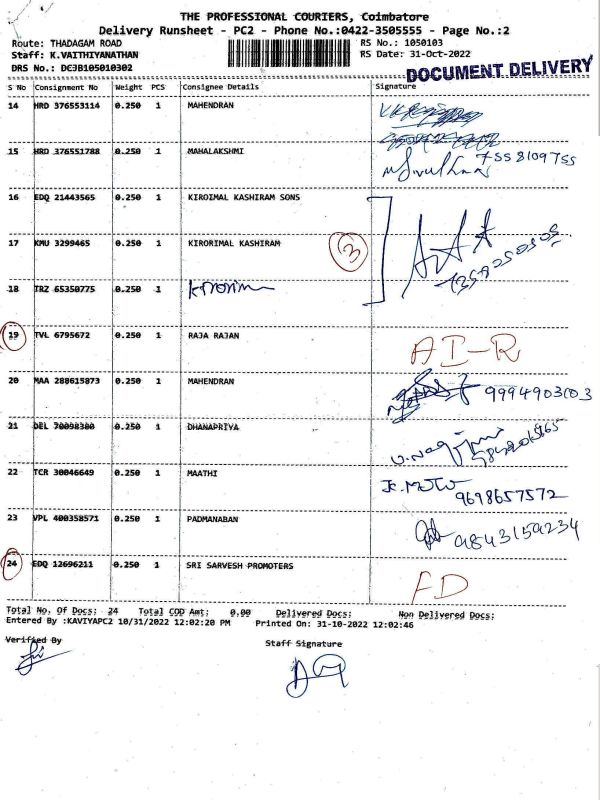 THE PROFESSIONAL COURIERS, Coimbatore
Delivery Runsheet - PC2 - Phone No.:0422-3505555 - Page No.:2
Route: THADAGAM ROAD
RS No.: 1050103
Staff: K.VAITHIYANATHAN
RS Date: 31-Oct-2022
DRS No.: DC3B105010302
DOCUMENT DELIVERY
S No Consignment No Weight PCS Consignee Details Signature
14 HRD 376553114 0.250 1 MAHENDRAN
15 HRD 376551788 0.250 1 MAHALAKSHMI 7558109755
16 EDQ 21443565 0.250 1 KIROIMAL KASHIRAM SONS
17 KMU 3299465 0.250 1 KIRORIMAL KASHIRAM 3
18 TRZ 65350775 0.250 1
19 TVL 6795672 0.250 1 RAJA RAJAN AI-R
20 MAA 288615873 0.250 1 MAHENDRAN 9994903103
21 DEL 70098380 0.250 1 DHANAPRIYA
22 TCR 30046649 0.250 1 MAATHI 9698657572
23 VPL 400358571 0.250 1 PADMANABAN 9843159234
24 EDQ 12696211 0.250 1 SRI SARVESH PROMOTERS FD
Total No. Of Docs: 24 Total COD Amt: 0.00 Delivered Docs: Non Delivered Docs:
Entered By :KAVIYAPC2 10/31/2022 12:02:20 PM Printed On: 31-10-2022 12:02:46
Verified By Staff Signature